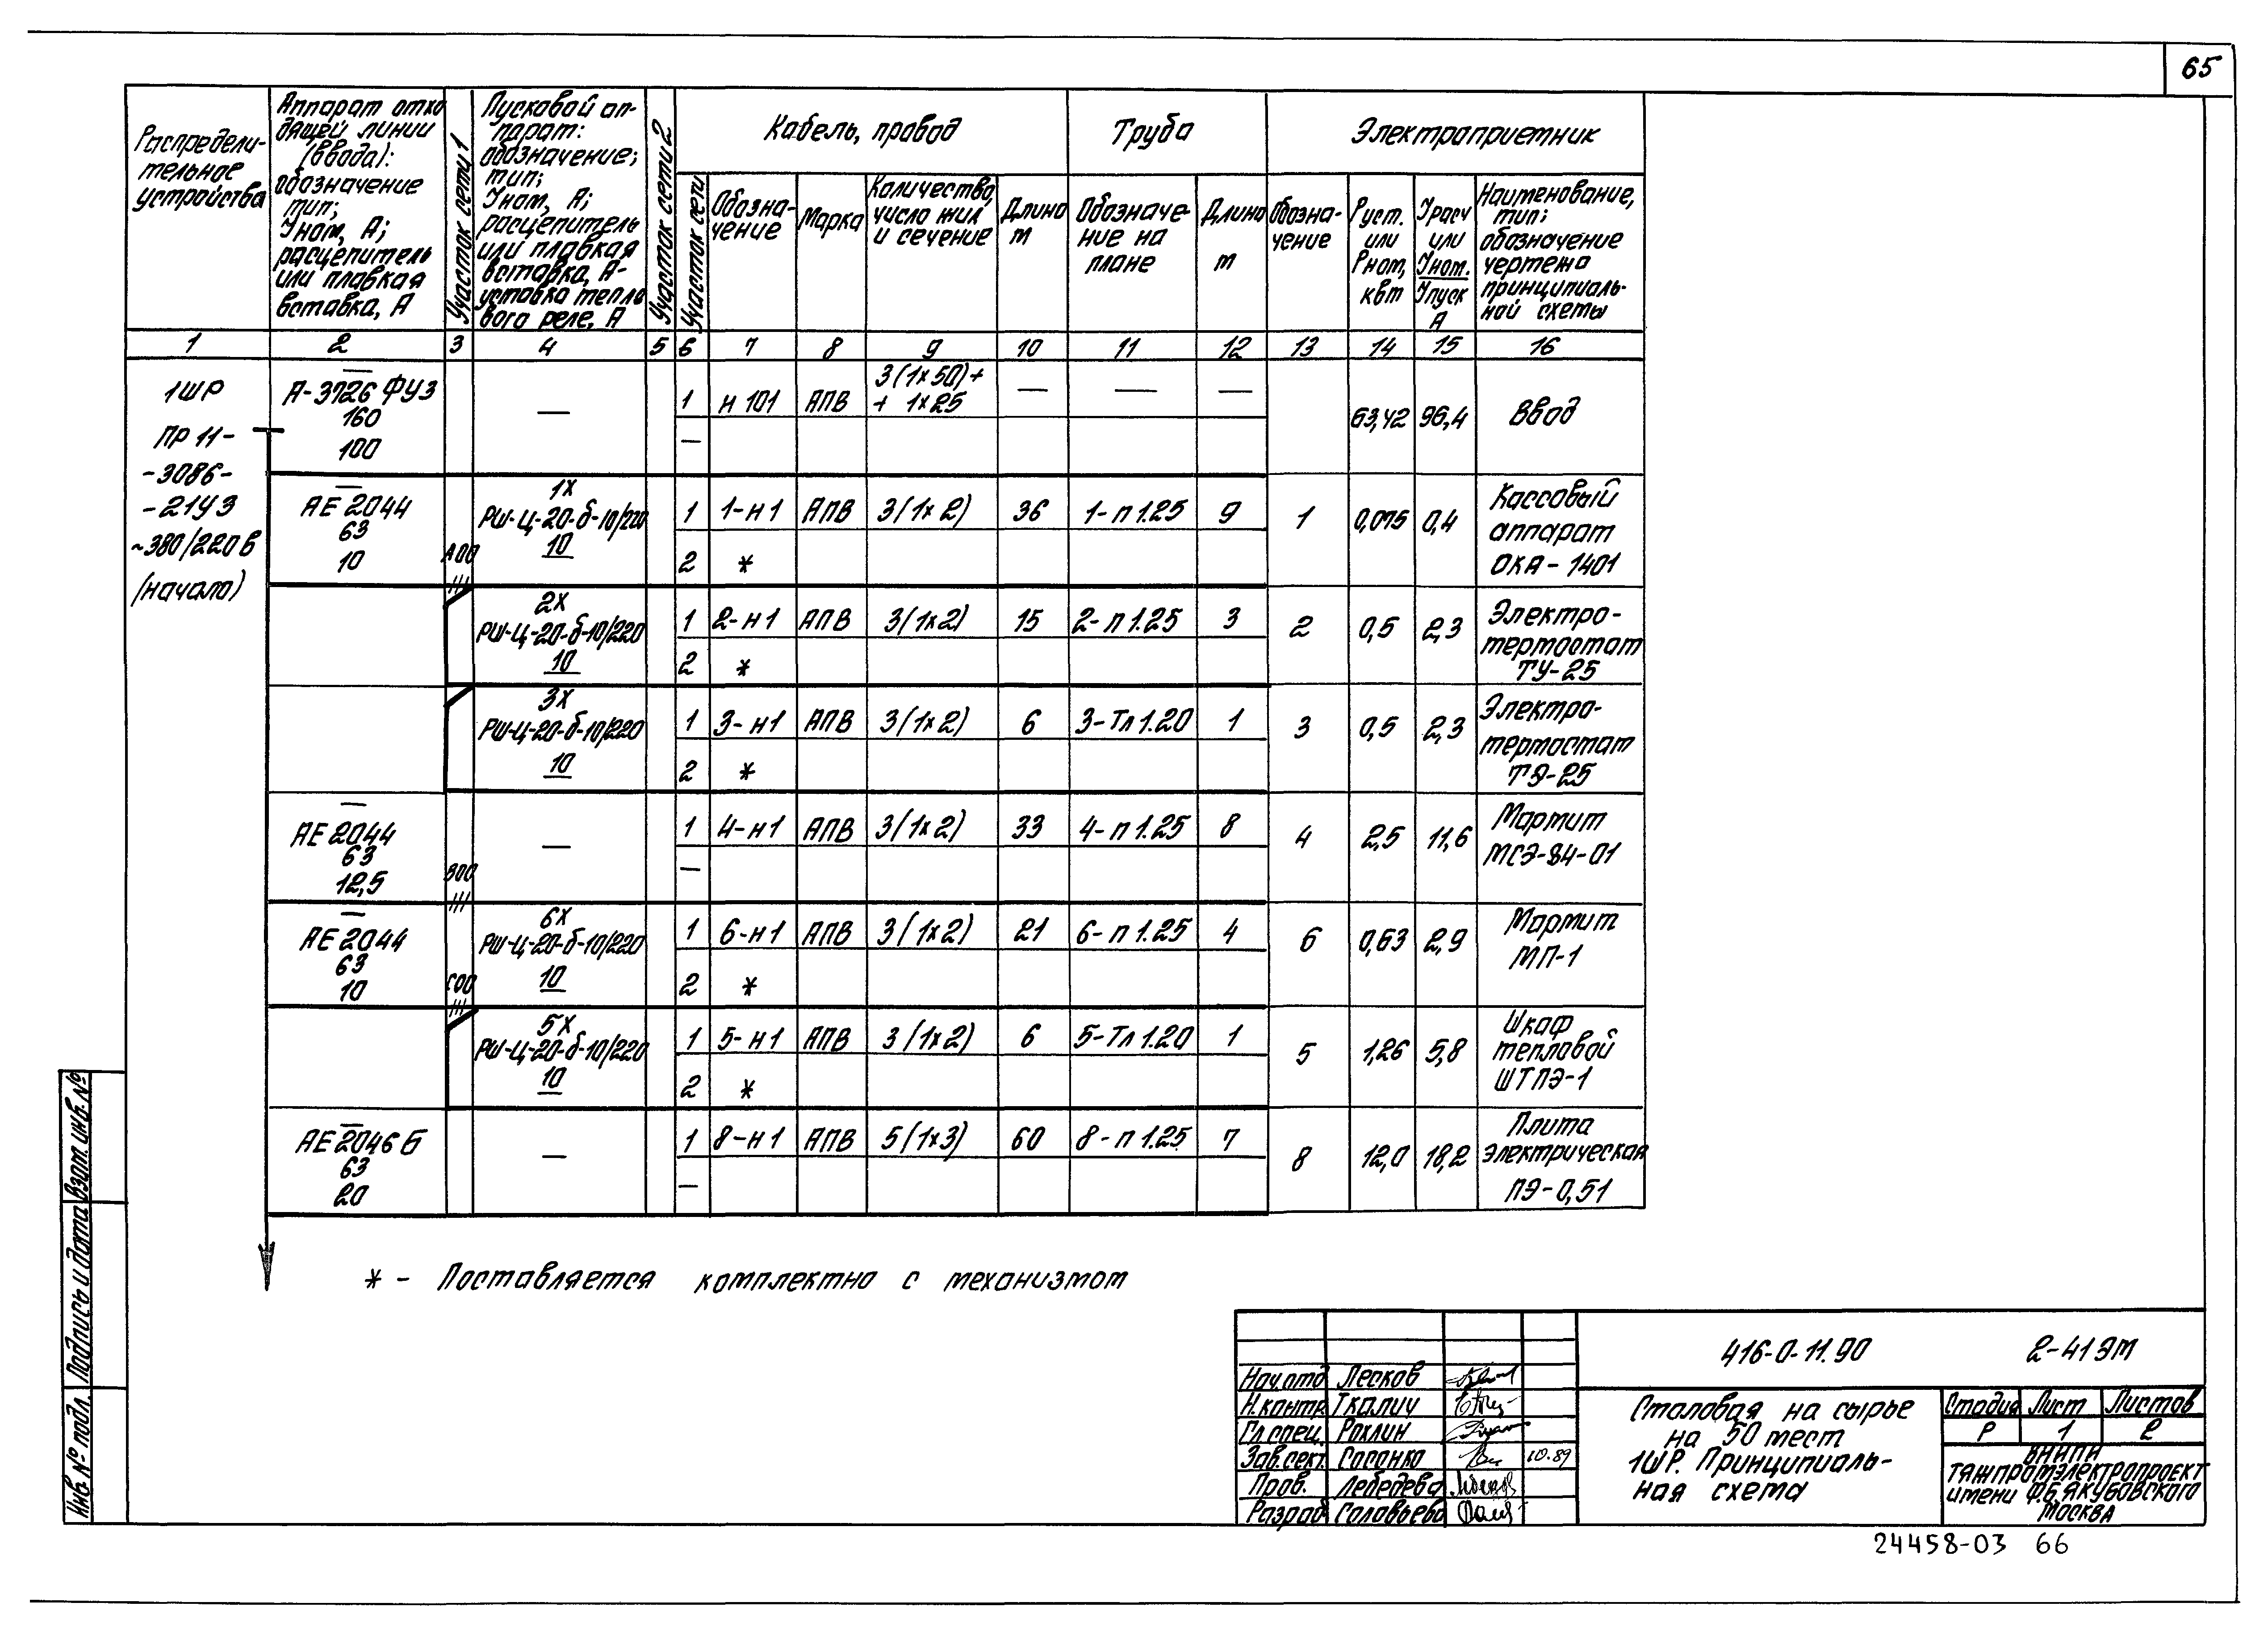 65
Распредели-
тельное
устройства
Аппарат отхо
дящей линии
(ввода):
обозначение
тип;
Iном, А;
расцепитель
или плавкая
вставка, А
Участок сети 1
Пусковой ап-
парат:
обозначение;
тип;
Iном, А;
расцепитель
или плавкая
вставка, А-
уставка тепло
вого реле, А
Участок сети 2
Участок сети
Кабель, провод
Обозна-
чение
Марка
Количество,
число жил
и сечение
Длина
м
Труба
Обозначе-
ние на
плане
Длина
м
Электроприемник
Обозна-
чение
Руст.
или
Рном,
квт
Iрасч
или
Iном.
Iпуск
А
Наименование,
тип;
обозначение
чертежа
принципиаль-
ной схемы
1 2 3 4 5 6 7 8 9 10 11 12 13 14 15 16
1ШР
ПР 11-
-3086-
-21У3
~380/220 в
(начало)
—
А-3726 ФУЗ
160
100
—
1 н 101 АПВ 3(1х50)+
+ 1х25 — — —
—
63,42 96,4 Ввод
—
АЕ 2044
63
10
А00
1х
РШ-Ц-20-б-10/220
10
1 1-н1 АПВ 3(1х2) 36 1-п1.25 9
2 *
1 0,075 0,4 Кассовый
аппарат
ОКА-1401
2х
РШ-Ц-20-б-10/220
10
1 2-н1 АПВ 3(1х2) 15 2-п1.25 3
2 *
2 0,5 2,3 Электро-
термостат
ТУ-25
3х
РШ-Ц-20-б-10/220
10
1 3-н1 АПВ 3(1х2) 6 3-Тл1.20 1
2 *
3 0,5 2,3 Электро-
термостат
ТЭ-25
—
АЕ 2044
63
12,5
В00
—
1 4-н1 АПВ 3(1х2) 33 4-п1.25 8
—
4 2,5 11,6 Мармит
МСЭ-84-01
—
АЕ 2044
63
10
С00
6х
РШ-Ц-20-б-10/220
10
1 6-н1 АПВ 3(1х2) 21 6-п1.25 4
2 *
6 0,63 2,9 Мармит
МП-1
5х
РШ-Ц-20-б-10/220
10
1 5-н1 АПВ 3(1х2) 6 5-Тл1.20 1
2 *
5 1,26 5,8 Шкаф
тепловой
ШТПЭ-1
—
АЕ 2046 Б
63
20
—
1 8-н1 АПВ 5(1х3) 60 8-п1.25 7
—
8 12,0 18,2 Плита
электрическая
ПЭ-0,51
* - Поставляется комплектно с механизмом
Инв. № подл. Подпись и дата Взам. инв. №
416-0-11.90 2-41 ЭМ
Нач.отд Лесков
Н.контр. Ткалич
Гл.спец. Рохлин
Зав.сект. Сосонко 10.89
Пров. Лебедева
Разраб Соловьева
Столовая на сырье
на 50 мест
1ШР. Принципиаль-
ная схема
Стадия Лист Листов
Р 1 2
ВНИПИ
ТЯЖПРОМЭЛЕКТРОПРОЕКТ
имени Ф.Б.Якубовского
Москва
24458-03 66